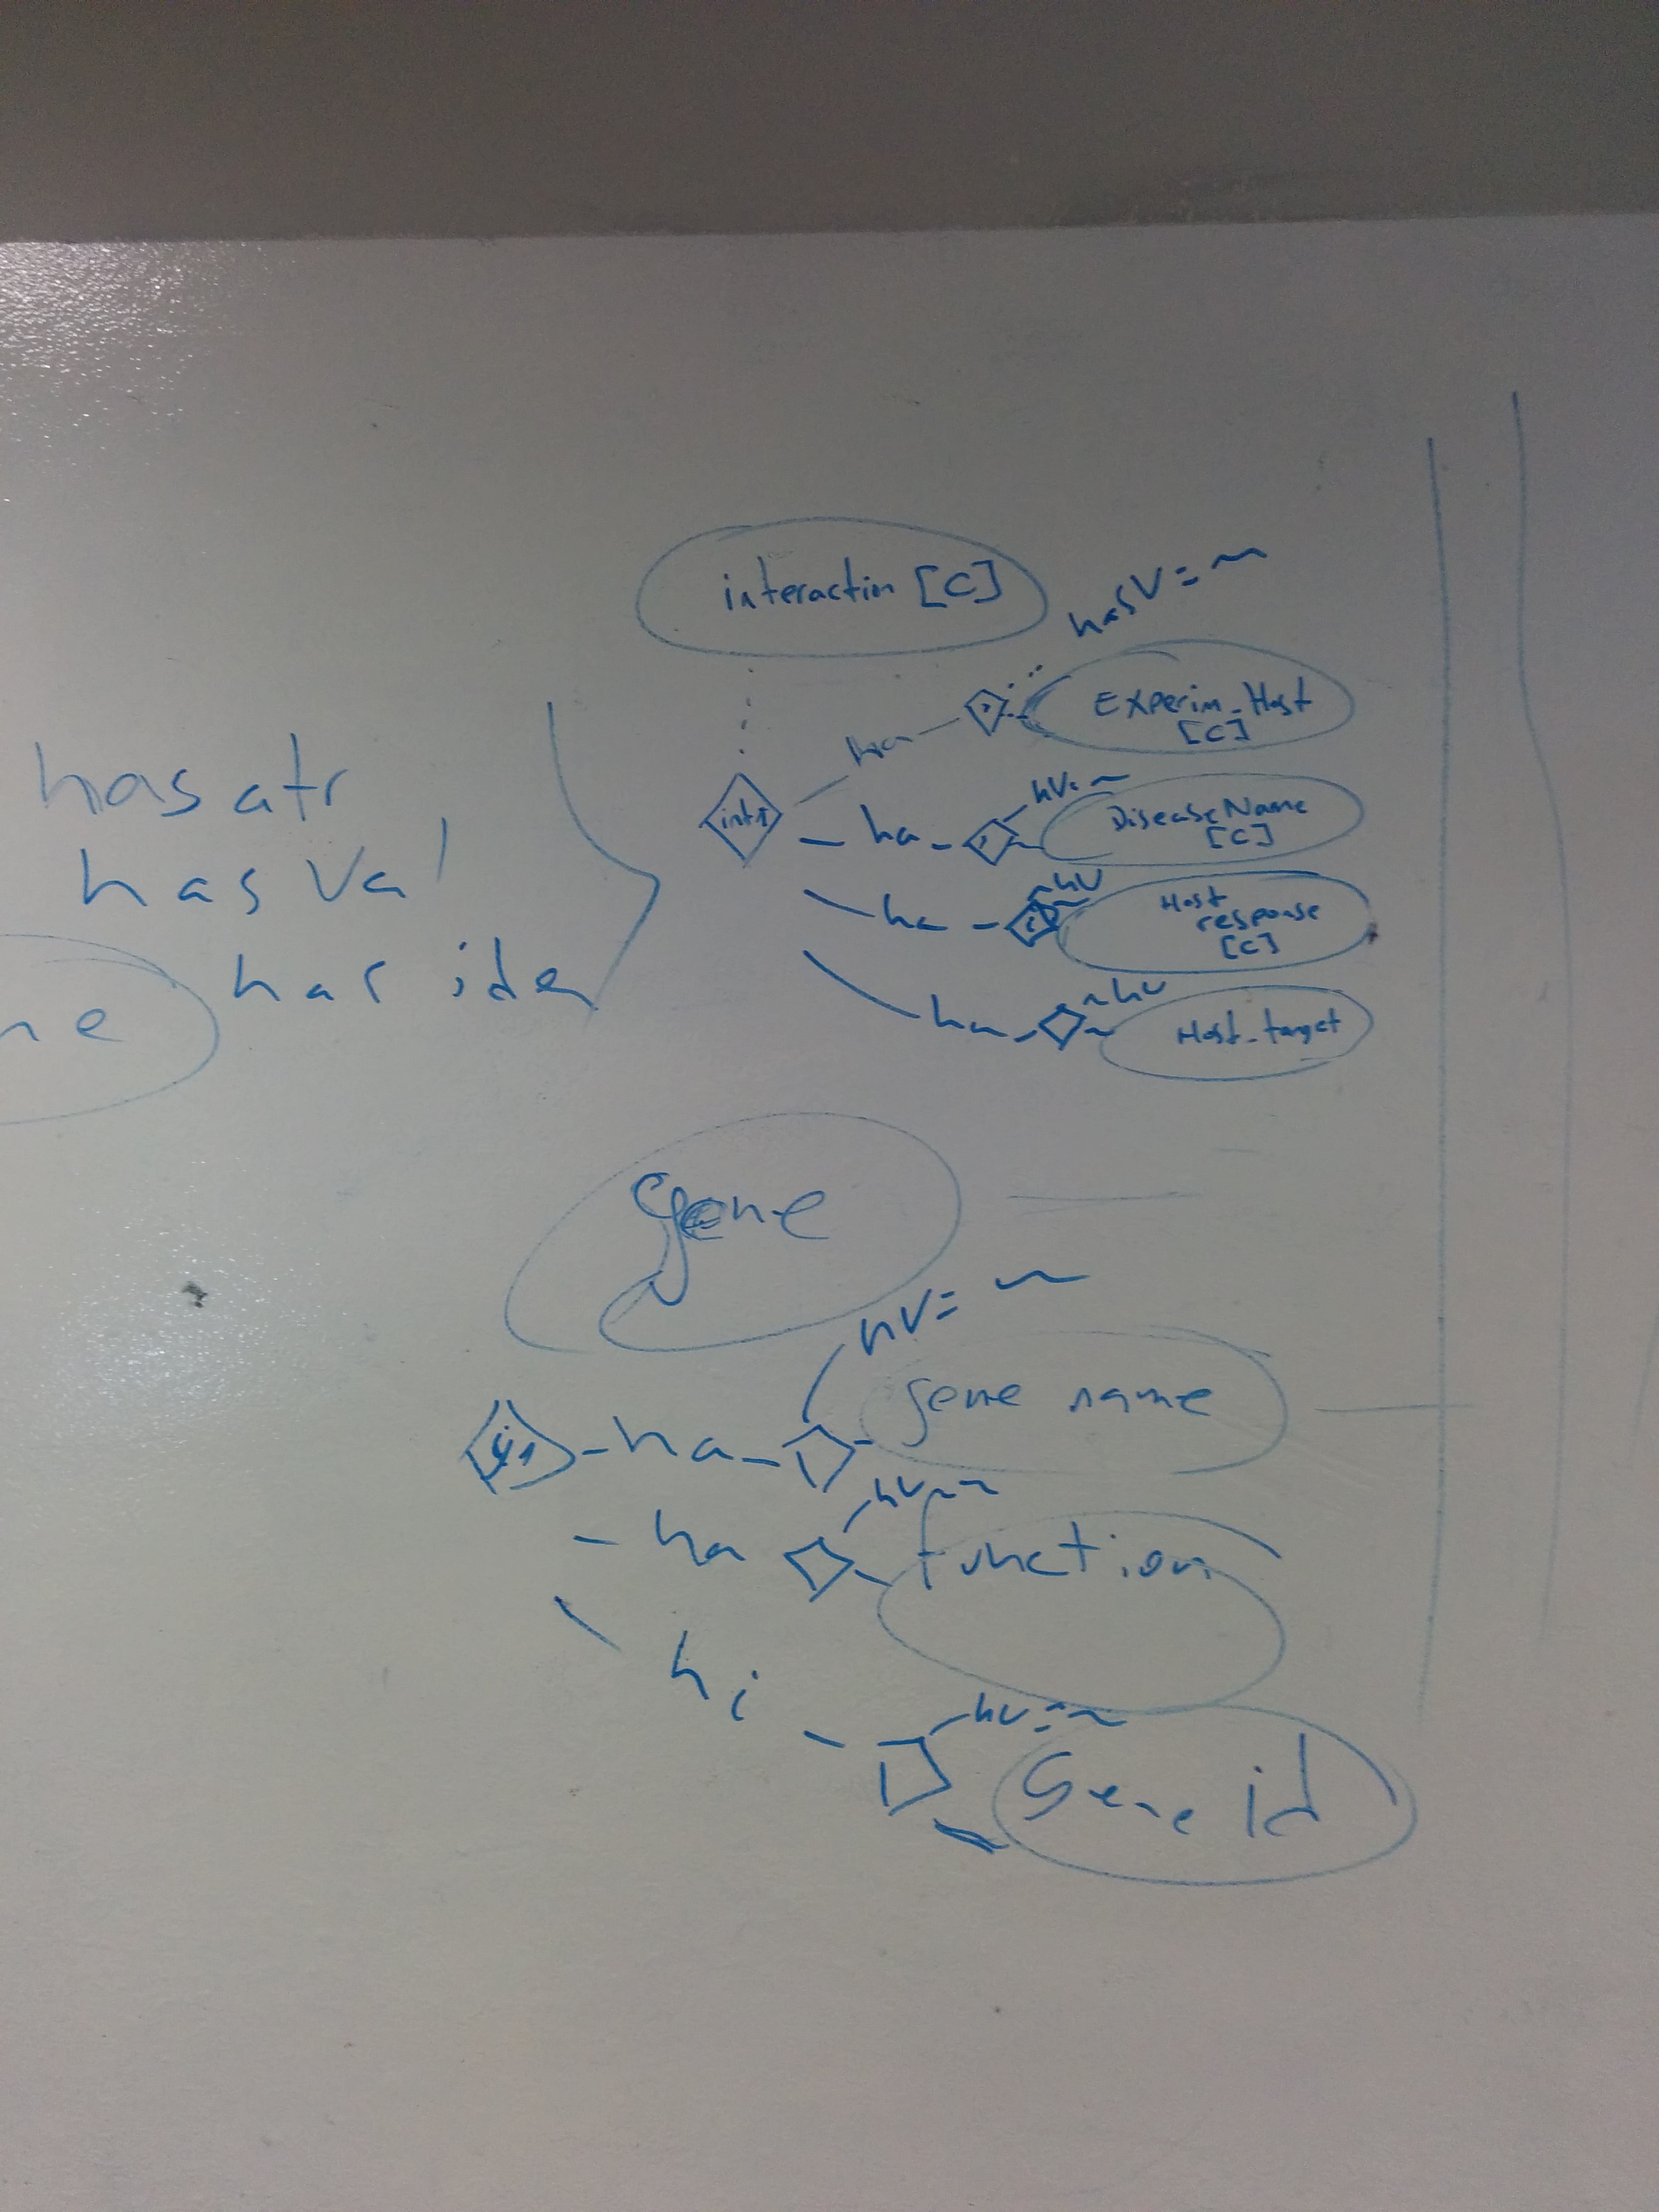 has atr
has Val
has iden
ne
interaction [C]
hasV = ~
int1
ha
Experim_Host
[C]
hV: ~
ha
Disease Name
[C]
~hV
ha
Host
response
[C]
~hV
ha
Host_target
gene
hV = ~
g1
ha
gene name
hV ~~
ha
function
hi
hV = ~
Gene id